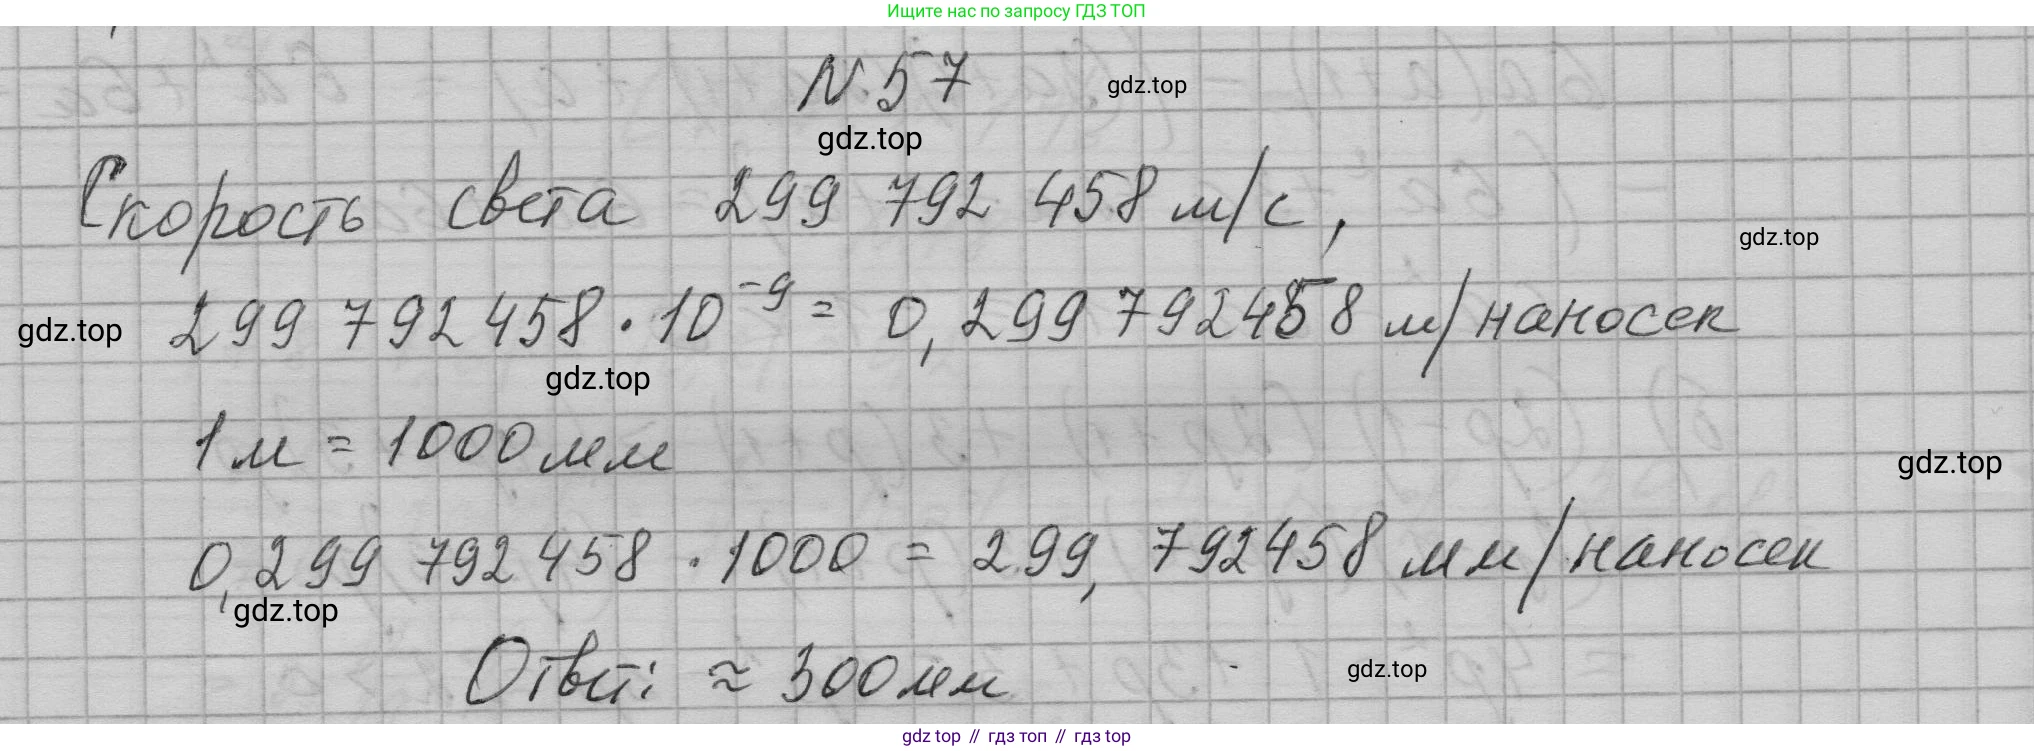 Ищите нас по запросу ГДЗ ТОП
N. 57
gdz.top
gdz.top
Скорость света 299 792 458 м/с,
gdz.top
299 792 458 · 10⁻⁹ = 0,299 792458 м/наносек
gdz.top
gdz.top
1 м = 1000 мм
gdz.top
0,299 792 458 · 1000 = 299, 792458 мм/наносек
gdz.top
Ответ: ≈ 300 мм
gdz.top
gdz top // гдз топ // гдз top